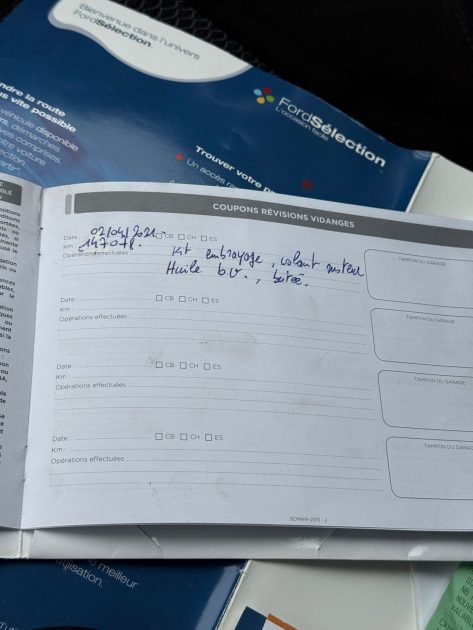 Bienvenue dans l'univers
FordSélection
FordSélection
L'occasion facile
vite possible
véhicule disponible
démarches
comprises.
votre voiture
Trouver votre
Un accès
COUPONS RÉVISIONS VIDANGES
Date : 02/04/2021. CB CH ES
Km : 147078.
Opérations effectuées :
Kit embrayage, volant moteur
Huile b.v., butée.
TAMPON DU GARAGE
Date : CB CH ES
Km :
Opérations effectuées :
TAMPON DU GARAGE
Date : CB CH ES
Km :
Opérations effectuées :
TAMPON DU GARAGE
Date : CB CH ES
Km :
Opérations effectuées :
TAMPON DU GARAGE
meilleur